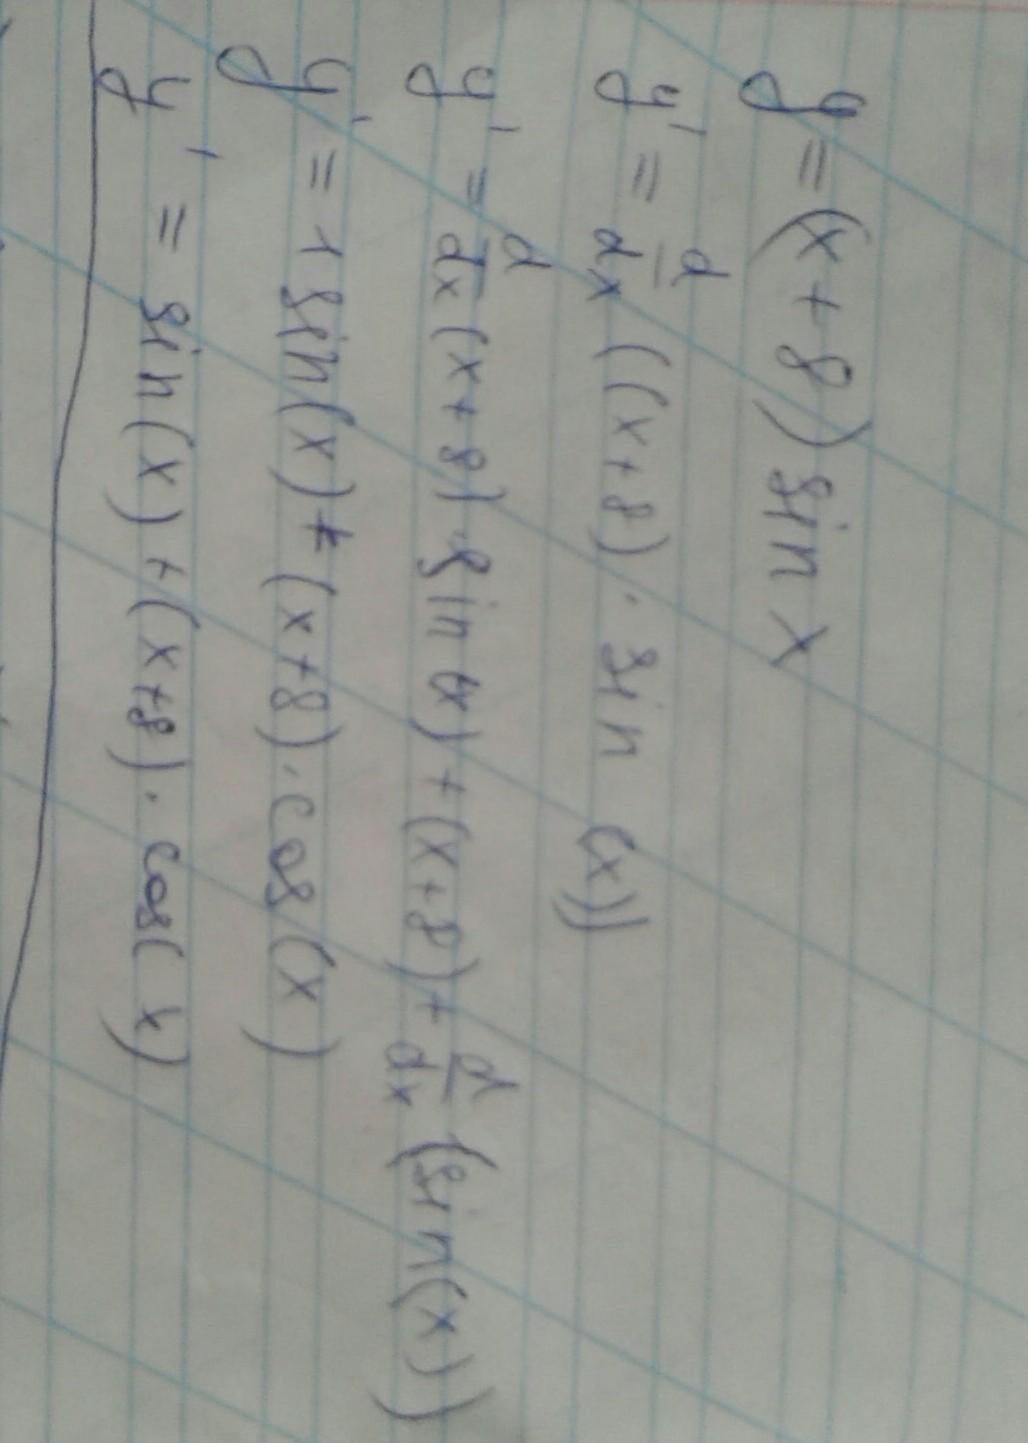 y = (x + 8) sin x
y' = d/dx ((x + 8) · sin (x))
y' = d/dx (x + 8) · sin (x) + (x + 8) + d/dx (sin(x))
y' = 1 sin(x) + (x + 8) · cos(x)
y' = sin(x) + (x + 8) · cos(x)